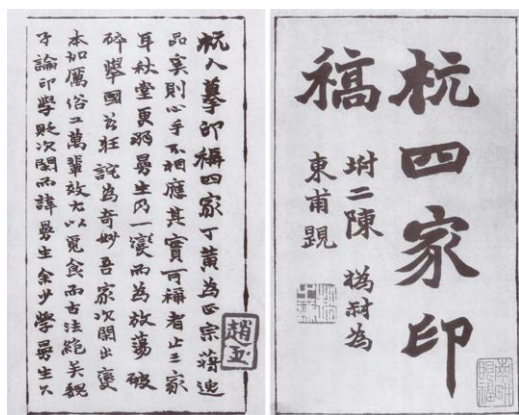 杭四家印
稿
坿二陳 撝尗為
東甫䚣
杭人摹印稱四家丁黃為正宗蔣逸
品奚則心手不相應其實可稱者止三家
耳秋堂更弱曼生乃一變而為放蕩破
碎舉國若狂詫為奇妙吾家次閑出變
本加厲俗工萬輩效尤以覓食而古法絕矣魏
子論印學貶次閑而諱曼生余少學曼生久